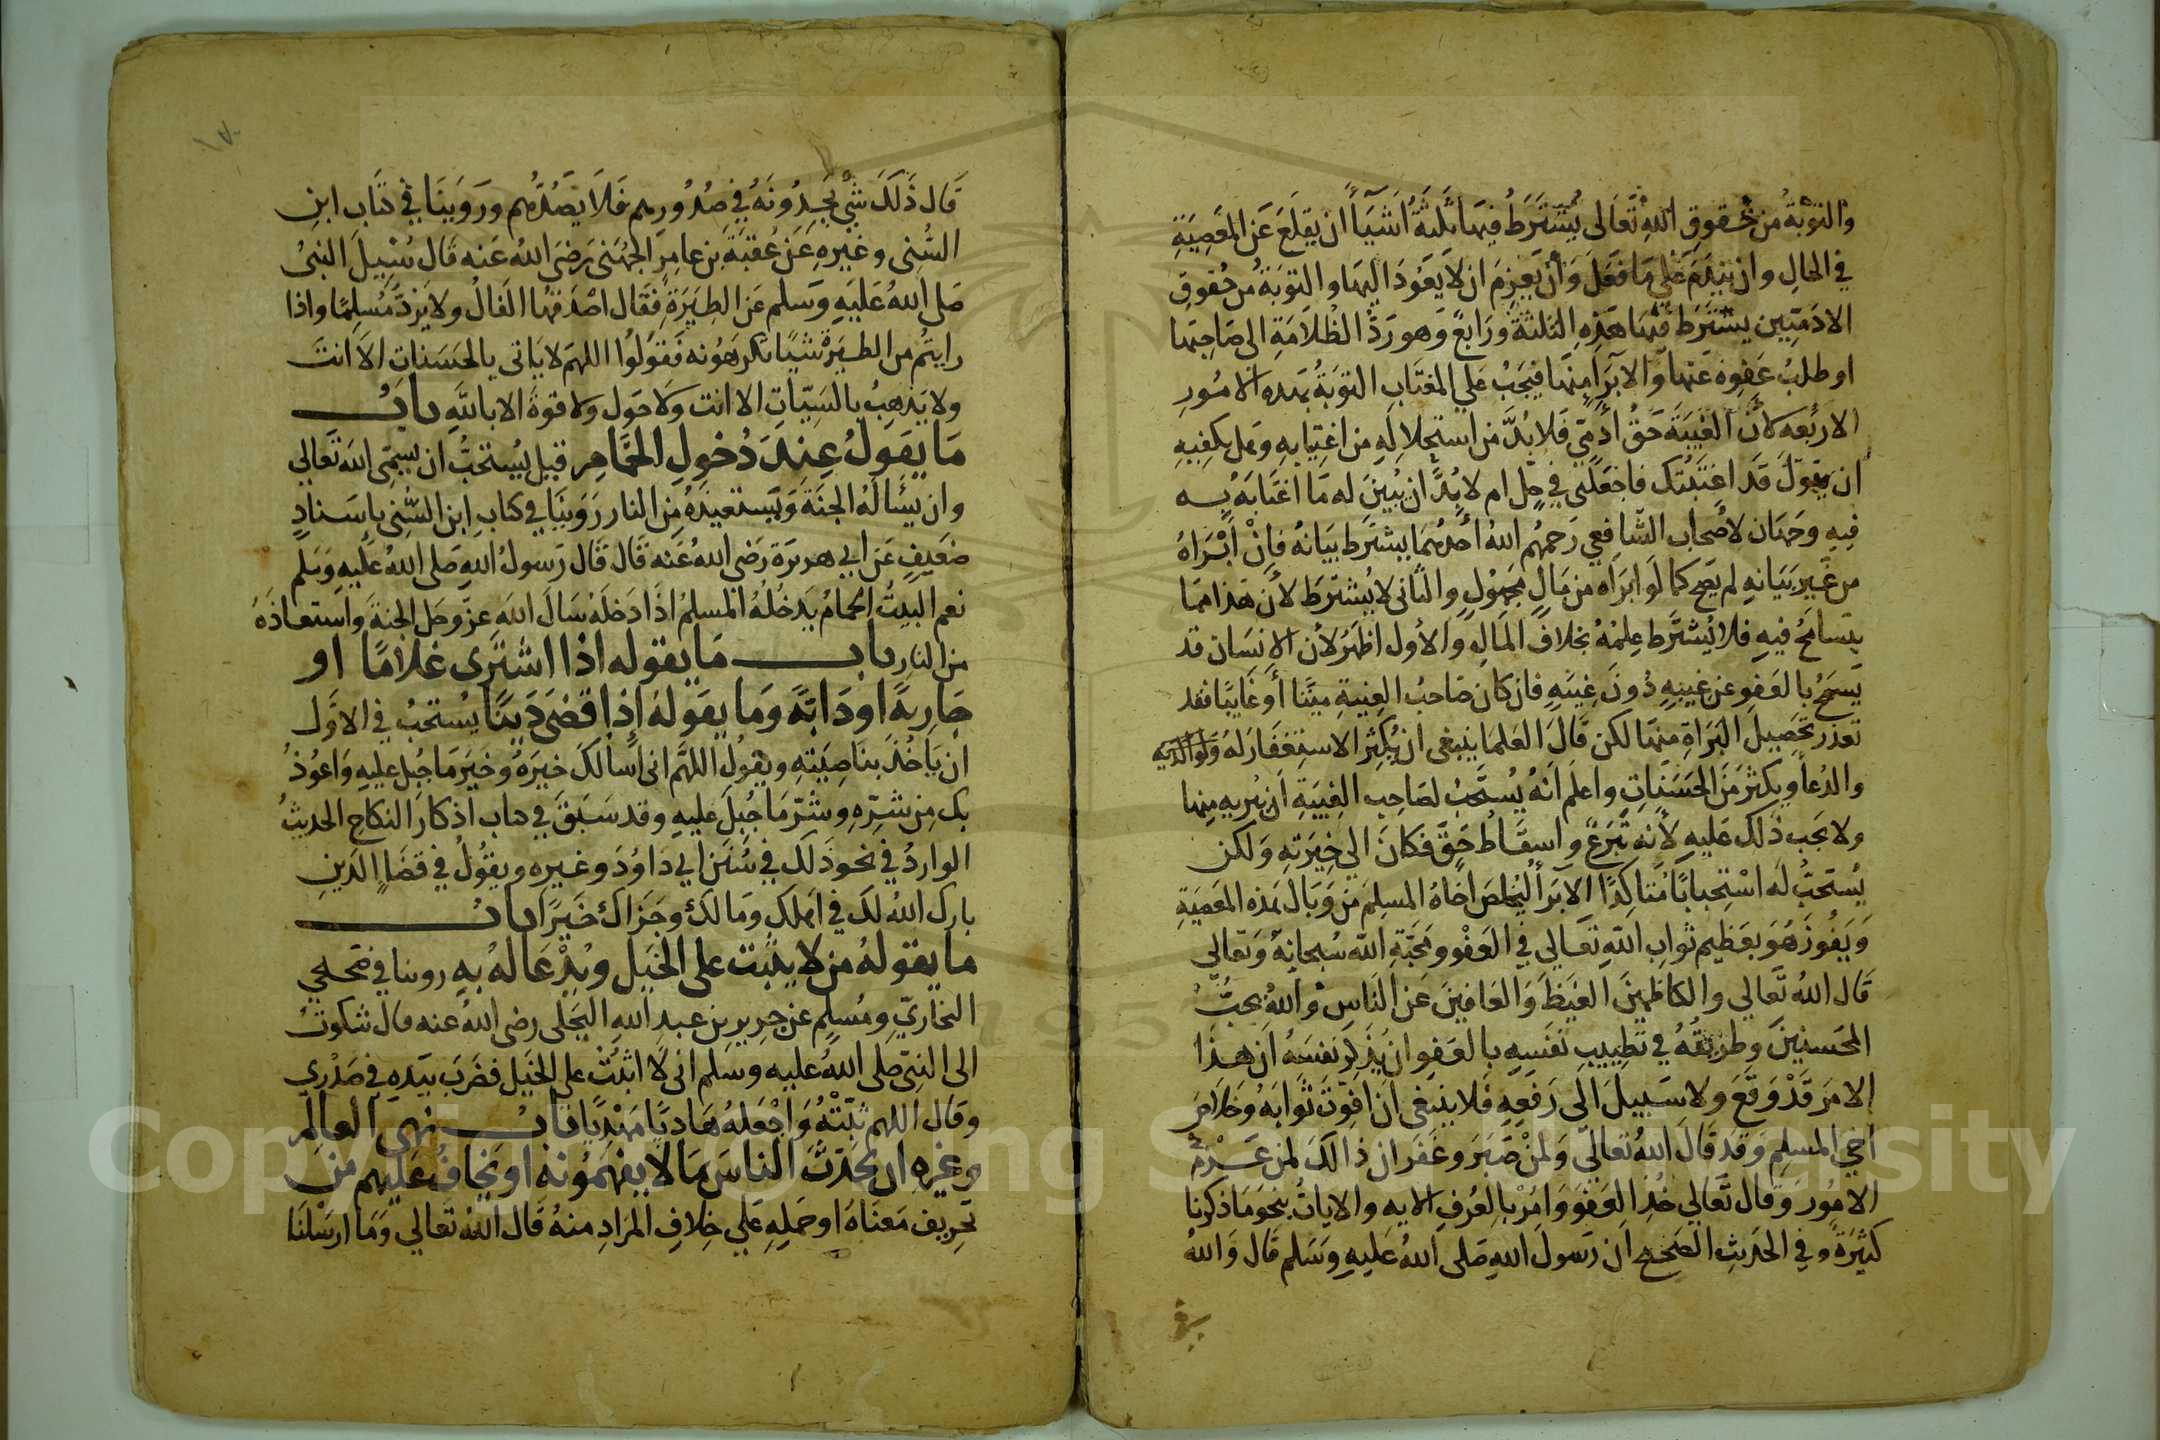 والتوبة من حقوق الله تعالى يشترط فيها ثلثة اشيآء ان يقلع عن المعصية
في الحال وان يندم على ما فعل وأن يعزم ان لا يعود اليها والتوبة من حقوق
الادميين يشترط فيها هذه الثلثة ورابع وهو رد الظلامة الى صاحبها
او طلب عفوه عنها والابرآ منها فيجب علي المغتاب التوبة بهذه الامور
الاربعه لأن الغيبة حق ادمي فلا بد من استحلاله من اغتيابه وهل يكفيه
ان يقول قد اغتبتك فاجعلني في حل ام لا بد ان يبين له ما اغتابه به
فيه وجهان لأصحاب الشافعي رحمهم الله أحدهما يشترط بيانه فإن ابراه
من غير بيانه لم يصح كما لو ابراه من مال مجهول والثاني لا يشترط لأن هذا مما
يتسامح فيه فلا يشترط علمه بخلاف المال والأول اظهر لأن الانسان قد
يسمح بالعفو عن غيبه دون غيبه فان كان صاحب الغيبة ميتا أو غايبا فقد
تعذر تحصيل البراة منها لكن قال العلما ينبغي ان يكثر الاستغفار له ولوالديه
والدعا ويكثر من الحسنات واعلم انه يستحب لصاحب الغيبة ان يبريه منها
ولا يجب ذلك عليه لأنه تبرع واسقاط حق فكان الي خيرته ولكن
يستحب له استحبابا متاكدا الابرأ ليخلص اخاه المسلم من وبال هذه المعصية
ويفوز هو بعظيم ثواب الله تعالي في العفو ومحبة الله سبحانه وتعالي
قال الله تعالي والكاظمين الغيظ والعافين عن الناس والله يحب
المحسنين وطريقه في تطييب نفسه بالعفو ان يذكر نفسه ان هذا
الامر قد وقع ولا سبيل الى رفعه فلا ينبغي ان افوت ثوابه وخلاص
اخي المسلم وقد قال الله تعالي ولمن صبر وغفر ان ذالك لمن عزم
الامور وقال تعالي خذ العفو وامر بالعرف الايه والايات بنحو ما ذكرنا
كثيرة وفي الحديث الصحيح ان رسول الله صلى الله عليه وسلم قال والله
قال ذلك شي يجدونه في صدورهم فلا يصدهم وروينا في كتاب ابن
السني وغيره عن عقبة بن عامر الجهني رضي الله عنه قال سئيل النبي
صلى الله عليه وسلم عن الطيرة فقال اصدقها الفال ولا يرد مسلما واذا
رايتم من الطيرة شيا تكرهونه فقولوا اللهم لا ياتي بالحسنات الا انت
ولا يذهب بالسيات الا انت ولا حول ولا قوة الا بالله باب
ما يقول عند دخول الحمام قيل يستحب ان يسمي الله تعالي
وان يسأله الجنة ويستعيذه من النار روينا في كتاب ابن السني باسناد
ضعيف عن ابي هريرة رضي الله عنه قال قال رسول الله صلى الله عليه وسلم
نعم البيت الحمام يدخله المسلم اذا دخله سال الله عز وجل الجنة واستعاذه
من النار باب ما يقوله اذا اشترى غلاما او
جارية او دابة وما يقوله إذا قضى دينا يستحب في الاول
ان ياخذ بناصيته ويقول اللهم اني أسالك خيره وخير ما جبل عليه واعوذ
بك من شره وشر ما جبل عليه وقد سبق في كتاب اذكار النكاح الحديث
الوارد في نحو ذلك في سنن ابي داود وغيره ويقول في قضا الدين
بارك الله لك في اهلك ومالك وجزاك خيرا باب
ما يقوله من لا يثبت على الخيل ويدعا له به روينا في صحيحي
البخاري ومسلم عن جرير بن عبد الله البجلي رضي الله عنه قال شكوت
الى النبي صلى الله عليه وسلم اني لا اثبت علي الخيل فضرب بيده في صدري
وقال اللهم ثبته واجعله هاديا مهديا باب نهي العالم
وغيره ان يحدث الناس ما لا يفهمونه او يخاف عليهم من
تحريف معناه او حمله علي خلاف المراد منه قال الله تعالي وما ارسلنا